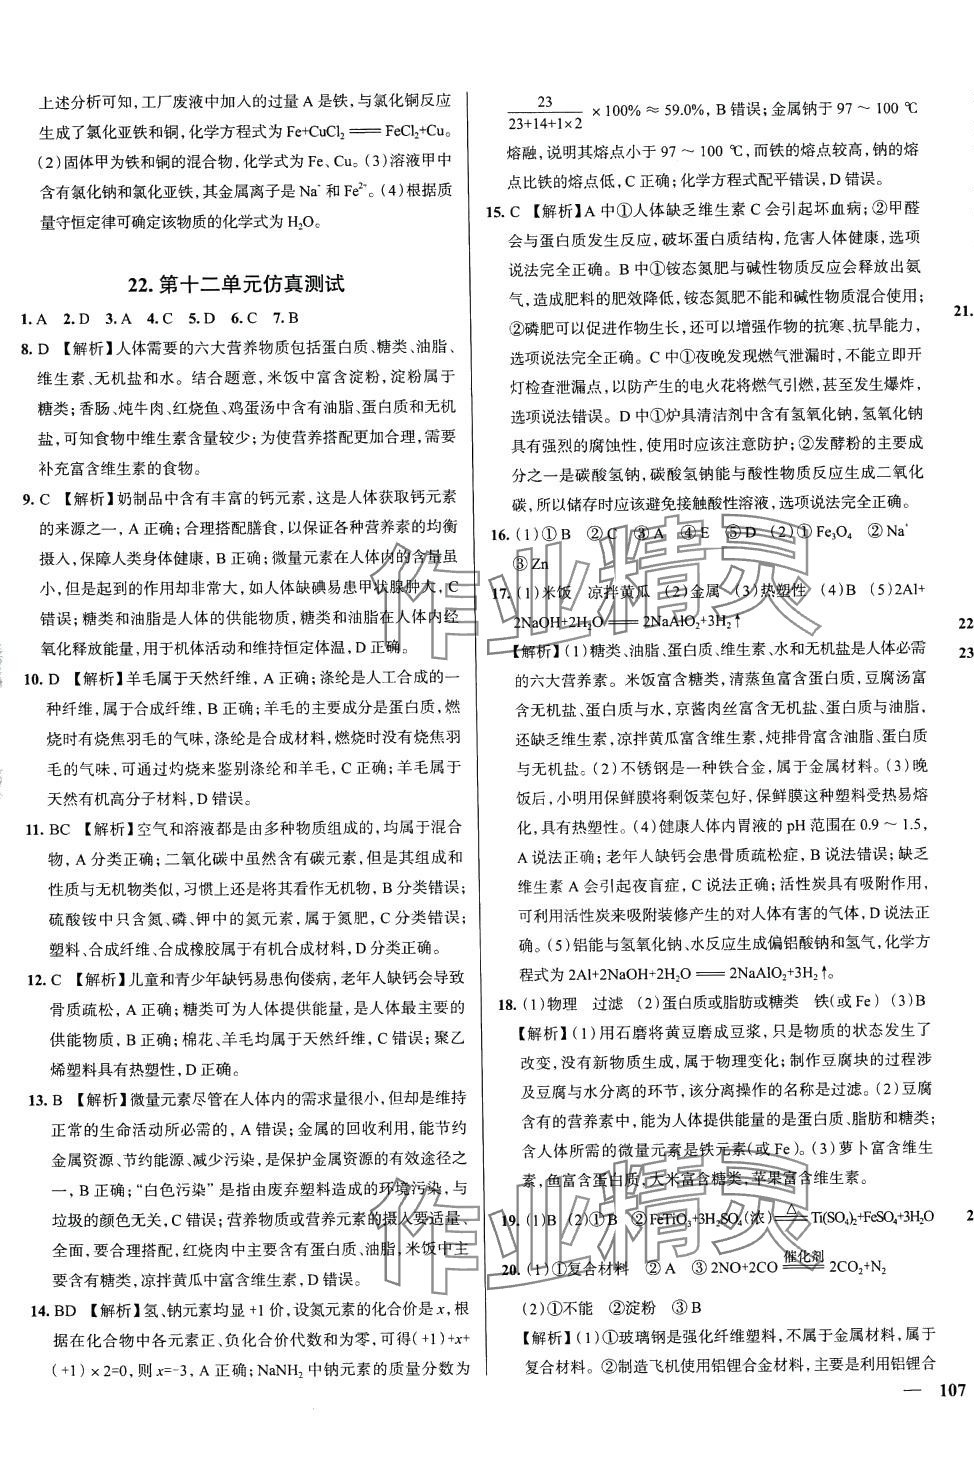 上述分析可知,工厂废液中加入的过量 A 是铁,与氯化铜反应
生成了氯化亚铁和铜,化学方程式为 Fe+CuCl₂ ═══ FeCl₂+Cu。
(2)固体甲为铁和铜的混合物,化学式为 Fe、Cu。(3)溶液甲中
含有氯化钠和氯化亚铁,其金属离子是 Na⁺ 和 Fe²⁺。(4)根据质
量守恒定律可确定该物质的化学式为 H₂O。
22. 第十二单元仿真测试
1. A 2. D 3. A 4. C 5. D 6. C 7. B
8. D 【解析】人体需要的六大营养物质包括蛋白质、糖类、油脂、
维生素、无机盐和水。结合题意,米饭中富含淀粉,淀粉属于
糖类;香肠、炖牛肉、红烧鱼、鸡蛋汤中含有油脂、蛋白质和无机
盐,可知食物中维生素含量较少;为使营养搭配更加合理,需要
补充富含维生素的食物。
9. C 【解析】奶制品中含有丰富的钙元素,这是人体获取钙元素
的来源之一,A 正确;合理搭配膳食,以保证各种营养素的均衡
摄入,保障人类身体健康,B 正确;微量元素在人体内的含量虽
小,但是起到的作用却非常大,如人体缺碘易患甲状腺肿大,C
错误;糖类和油脂是人体的供能物质,糖类和油脂在人体内经
氧化释放能量,用于机体活动和维持恒定体温,D 正确。
10. D 【解析】羊毛属于天然纤维,A 正确;涤纶是人工合成的一
种纤维,属于合成纤维,B 正确;羊毛的主要成分是蛋白质,燃
烧时有烧焦羽毛的气味,涤纶是合成材料,燃烧时没有烧焦羽
毛的气味,可通过灼烧来鉴别涤纶和羊毛,C 正确;羊毛属于
天然有机高分子材料,D 错误。
11. BC 【解析】空气和溶液都是由多种物质组成的,均属于混合
物,A 分类正确;二氧化碳中虽然含有碳元素,但是其组成和
性质与无机物类似,习惯上还是将其看作无机物,B 分类错误;
硫酸铵中只含氮、磷、钾中的氮元素,属于氮肥,C 分类错误;
塑料、合成纤维、合成橡胶属于有机合成材料,D 分类正确。
12. C 【解析】儿童和青少年缺钙易患佝偻病,老年人缺钙会导致
骨质疏松,A 正确;糖类可为人体提供能量,是人体最主要的
供能物质,B 正确;棉花、羊毛属于天然材料,C 错误;聚乙
烯塑料具有热塑性,D 正确。
13. B 【解析】微量元素尽管在人体内的需求量很小,但却是维持
正常的生命活动所必需的,A 错误;金属的回收利用,能节约
金属资源、节约能源、减少污染,是保护金属资源的有效途径之
一,B 正确;“白色污染”是指由废弃塑料造成的环境污染,与
垃圾的颜色无关,C 错误;营养物质或营养元素的摄入要适量、
全面,要合理搭配,红烧肉中主要含蛋白质、油脂,米饭中主要
含糖类,凉拌黄瓜中富含维生素,D 错误。
14. BD 【解析】氢、钠元素均显 +1 价,设氮元素的化合价是 x,根
据在化合物中各元素正、负化合价代数和为零,可得(+1)+x+
(+1)×2=0,则 x=-3,A 正确;NaNH₂ 中钠元素的质量分数为
23/(23+14+1×2) ×100% ≈ 59.0%,B 错误;金属钠于 97 ～ 100 ℃
熔融,说明其熔点小于 97 ～ 100 ℃,而铁的熔点较高,钠的熔
点比铁的熔点低,C 正确;化学方程式配平错误,D 错误。
15. C 【解析】A 中①人体缺乏维生素 C 会引起坏血病;②甲醛
会与蛋白质发生反应,破坏蛋白质结构,危害人体健康,选项
说法完全正确。B 中①铵态氮肥与碱性物质反应会释放出氨
气,造成肥料的肥效降低,铵态氮肥不能和碱性物质混合使用;
②磷肥可以促进作物生长,还可以增强作物的抗寒、抗旱能力,
选项说法完全正确。C 中①夜晚发现燃气泄漏时,不能立即开
灯检查泄漏点,以防产生的电火花将燃气引燃,甚至发生爆炸,
选项说法错误。D 中①炉具清洁剂中含有氢氧化钠,氢氧化钠
具有强烈的腐蚀性,使用时应该注意防护;②发酵粉的主要成
分之一是碳酸氢钠,碳酸氢钠能与酸性物质反应生成二氧化
碳,所以储存时应该避免接触酸性溶液,选项说法完全正确。
16. (1)①B ②C ③A ④E ⑤D (2)①Fe₃O₄ ②Na⁺
③Zn
17. (1)米饭 凉拌黄瓜 (2)金属 (3)热塑性 (4)B (5)2Al+
2NaOH+2H₂O ═══ 2NaAlO₂+3H₂↑
【解析】(1)糖类、油脂、蛋白质、维生素、水和无机盐是人体必需
的六大营养素。米饭富含糖类,清蒸鱼富含蛋白质,豆腐汤富
含无机盐、蛋白质与水,京酱肉丝富含无机盐、蛋白质与油脂,
还缺乏维生素,凉拌黄瓜富含维生素,炖排骨富含油脂、蛋白质
与无机盐。(2)不锈钢是一种铁合金,属于金属材料。(3)晚
饭后,小明用保鲜膜将剩饭菜包好,保鲜膜这种塑料受热易熔
化,具有热塑性。(4)健康人体内胃液的 pH 范围在 0.9 ～ 1.5,
A 说法正确;老年人缺钙会患骨质疏松症,B 说法错误;缺乏
维生素 A 会引起夜盲症,C 说法正确;活性炭具有吸附作用,
可利用活性炭来吸附装修产生的对人体有害的气体,D 说法正
确。(5)铝能与氢氧化钠、水反应生成偏铝酸钠和氢气,化学方
程式为 2Al+2NaOH+2H₂O ═══ 2NaAlO₂+3H₂↑。
18. (1)物理 过滤 (2)蛋白质或脂肪或糖类 铁(或 Fe) (3)B
【解析】(1)用石磨将黄豆磨成豆浆,只是物质的状态发生了
改变,没有新物质生成,属于物理变化;制作豆腐块的过程涉
及豆腐与水分离的环节,该分离操作的名称是过滤。(2)豆腐
含有的营养素中,能为人体提供能量的是蛋白质、脂肪和糖类;
含人体所需的微量元素是铁元素(或 Fe)。(3)萝卜富含维生
素,鱼富含蛋白质,大米富含糖类,苹果富含维生素。
19. (1)B (2)①B ②FeTiO₃+3H₂SO₄(浓) ═△═ Ti(SO₄)₂+FeSO₄+3H₂O
20. (1)①复合材料 ②A ③2NO+2CO ═催化剂═ 2CO₂+N₂
(2)①不能 ②淀粉 ③B
【解析】(1)①玻璃钢是强化纤维塑料,不属于金属材料,属于
复合材料。②制造飞机使用铝锂合金材料,主要是利用铝锂合
21.
22
23
2
— 107
作业精灵
作业精灵